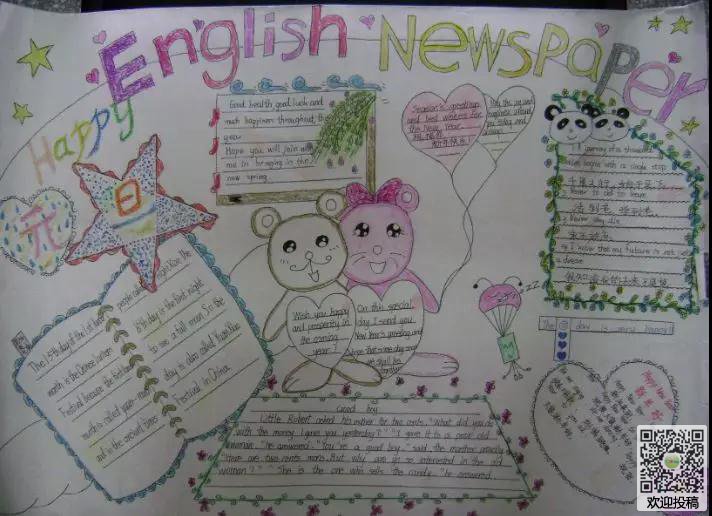 English Newspaper
Happy
元
旦
Good health good luck and
much happiness throughout the
year
Hope you will join
me in bringing in the
new spring
Season's greetings
and best wishes for
the New Year.
A journey of a thousand
miles begins with a single step
千里之行,始于足下
Never too old to learn
活到老,学到老
Never say die
永不放弃
The 15th day of the 1st lunar
month is the Chinese Lantern
Festival because the first lunar
month is called yuan-
and in the ancient times
people called night Xiao. The
15th day is the first night
to see a full moon. So the
day is also called Yuan Xiao
Festival in China.
Wish you happy
and prosperity in
the coming
year!
On this special
day I send you
New Year's greeting and
hope that some day soon
we shall be
together
ZZZ
The day is very happy!!
Good boy
Little Robert asked his mother for two cents. "What did you do
with the money I gave you yesterday?" "I gave it to a poor old
woman," he answered. "You're a good boy," said the mother proudly.
"Here are two cents more. But why are you so interested in the old
woman?" "She is the one who sells the candy." he answered.
欢迎投稿